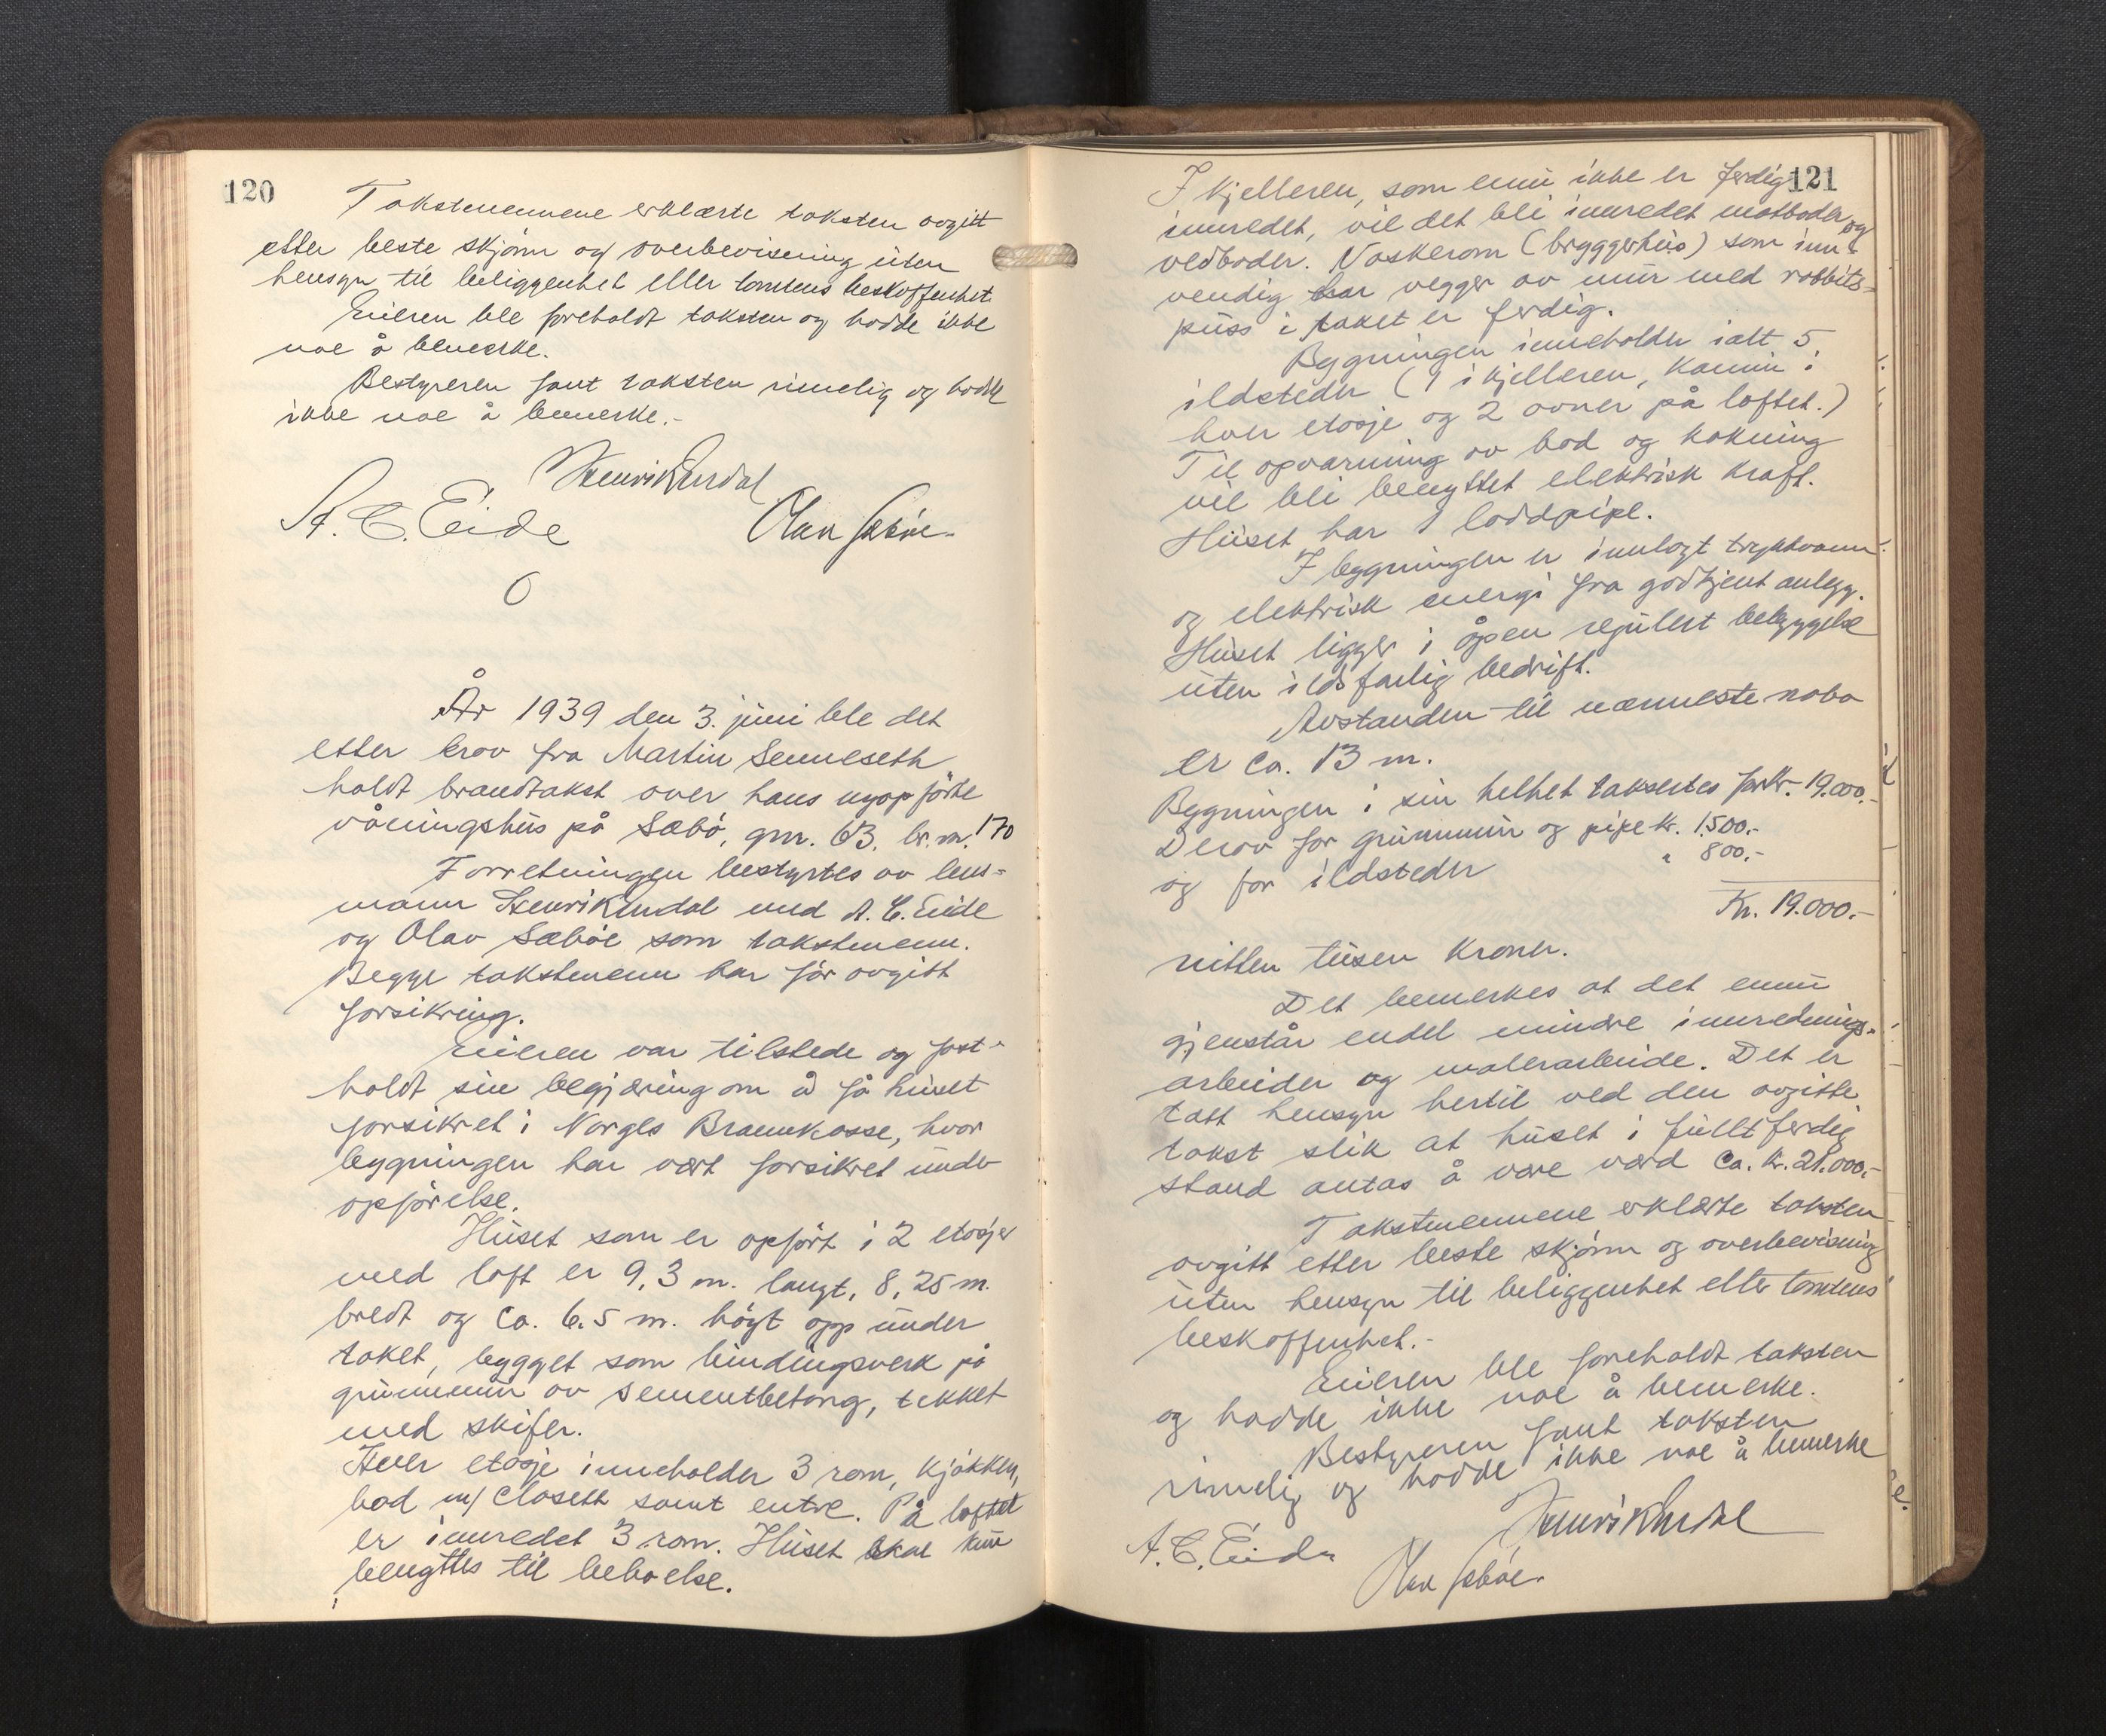 120
Takstmennene erklærte taksten avgitt
etter beste skjønn og overbevisning uten
hensyn til beliggenhet eller tomtens beskaffenhet.
Eieren ble foreholdt taksten og hadde ikke
noe å bemerke.
Bestyreren fant taksten rimelig og hadde
ikke noe å bemerke.-
Henrik Endal
A. C. Eide
Olav Sæbøe.
År 1939 den 3. juni ble det
etter krav fra Martin Senneseth
holdt brandtakst over hans nyopförte
våningshus på Sæbö, gnr. 63. br.nr. 170
Forretningen bestyrtes av lens=
mann Henrik Endal med A. C. Eide
og Olav Sæböe som takstmenn.
Begge takstmenn har för avgitt
forsikring.
Eieren var tilstede og fast-
holdt sin begjæring om å få huset
forsikret i Norges Brannkasse, hvor
bygningen har vært forsikret under
opförelse.
Huset som er opfört i 2 etasjer
med loft er 9,3 m. langt, 8,25 m.
bredt og ca. 6.5 m. høgt opp under
taket, bygget som bindingsverk på
grunnmur av sementbetong, tekket
med skifer.
Hver etasje inneholder 3 rom, kjøkken,
bad m/ closett samt entre. På loftet
er innredet 3 rom. Huset skal kun
benyttes til beboelse.
121
I kjelleren, som ennu ikke er ferdig
innredet, vil det bli innredet matboder og
vedboder. Vaskerom (bryggerhus) som inn-
vendig har vegger av mur med rabbits=
puss i taket er ferdig.
Bygningen inneholder ialt 5
ildsteder (1 i kjelleren, kamin i
hver etasje og 2 ovner på loftet.)
Til opvarming av bad og kokning
vil bli benyttet elektrisk kraft.
Huset har 1 loddpipe.
I bygningen er innlagt trykkvann
og elektrisk energi fra godkjent anlegg.
Huset ligger i åpen regulert bebyggelse
uten ildsfarlig bedrift.
Avstanden til nærmeste nabo
er ca. 13 m.
Bygningen i sin helhet takseres for kr. 19.000.-
Derav for grunnmur og pipe kr. 1.500.-
og for ildsteder " 800.-
Kr. 19.000.-
nitten tusen kroner.
Det bemerkes at det ennu
gjenstår endel mindre innrednings-
arbeider og malerarbeide. Det er
tatt hensyn hertil ved den avgitte
takst slik at huset i fullt ferdig
stand antas å være verd ca. kr. 21.000.-
Takstmennene erklærte taksten
avgitt etter beste skjønn og overbevisning
uten hensyn til beliggenhet eller tomtens
beskaffenhet.-
Eieren ble foreholdt taksten
og hadde ikke noe å bemerke.
Bestyreren fant taksten
rimelig og hadde ikke noe å bemerke
Henrik Endal
A. C. Eide
Olav Sæbøe.